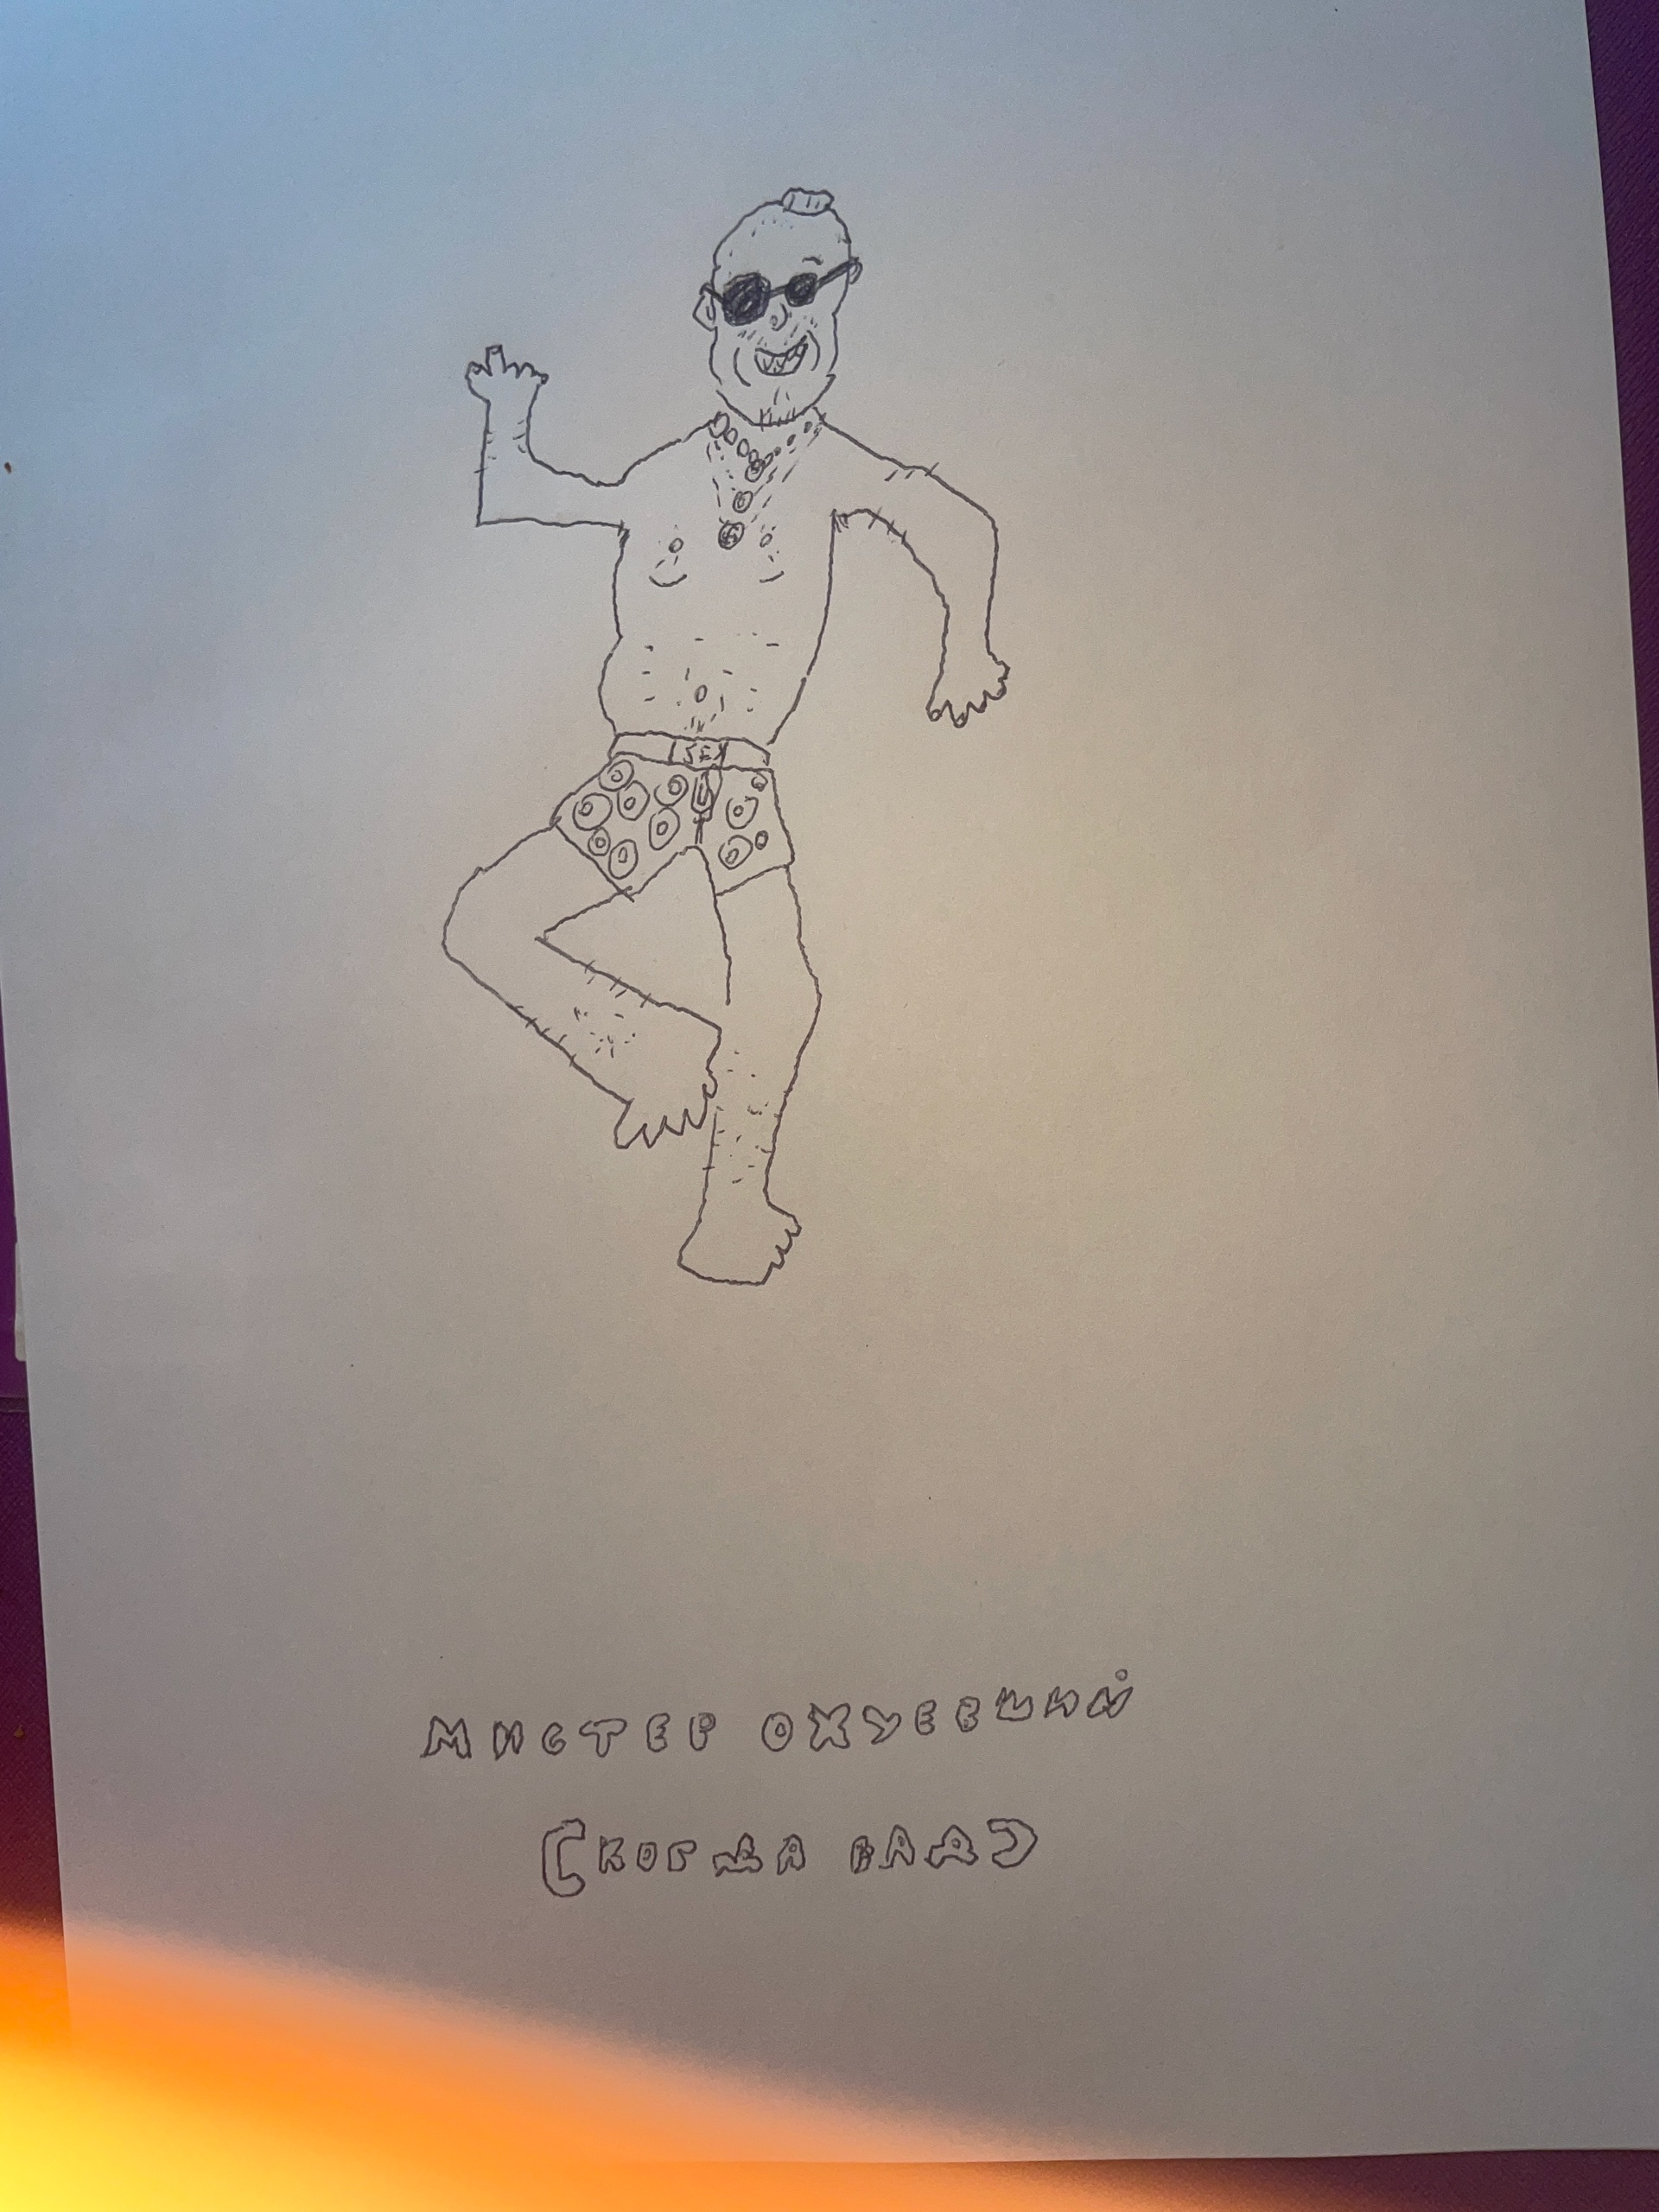 SEX
МИСТЕР ОХУЕВШИЙ
(КОГДА ВАДЭ